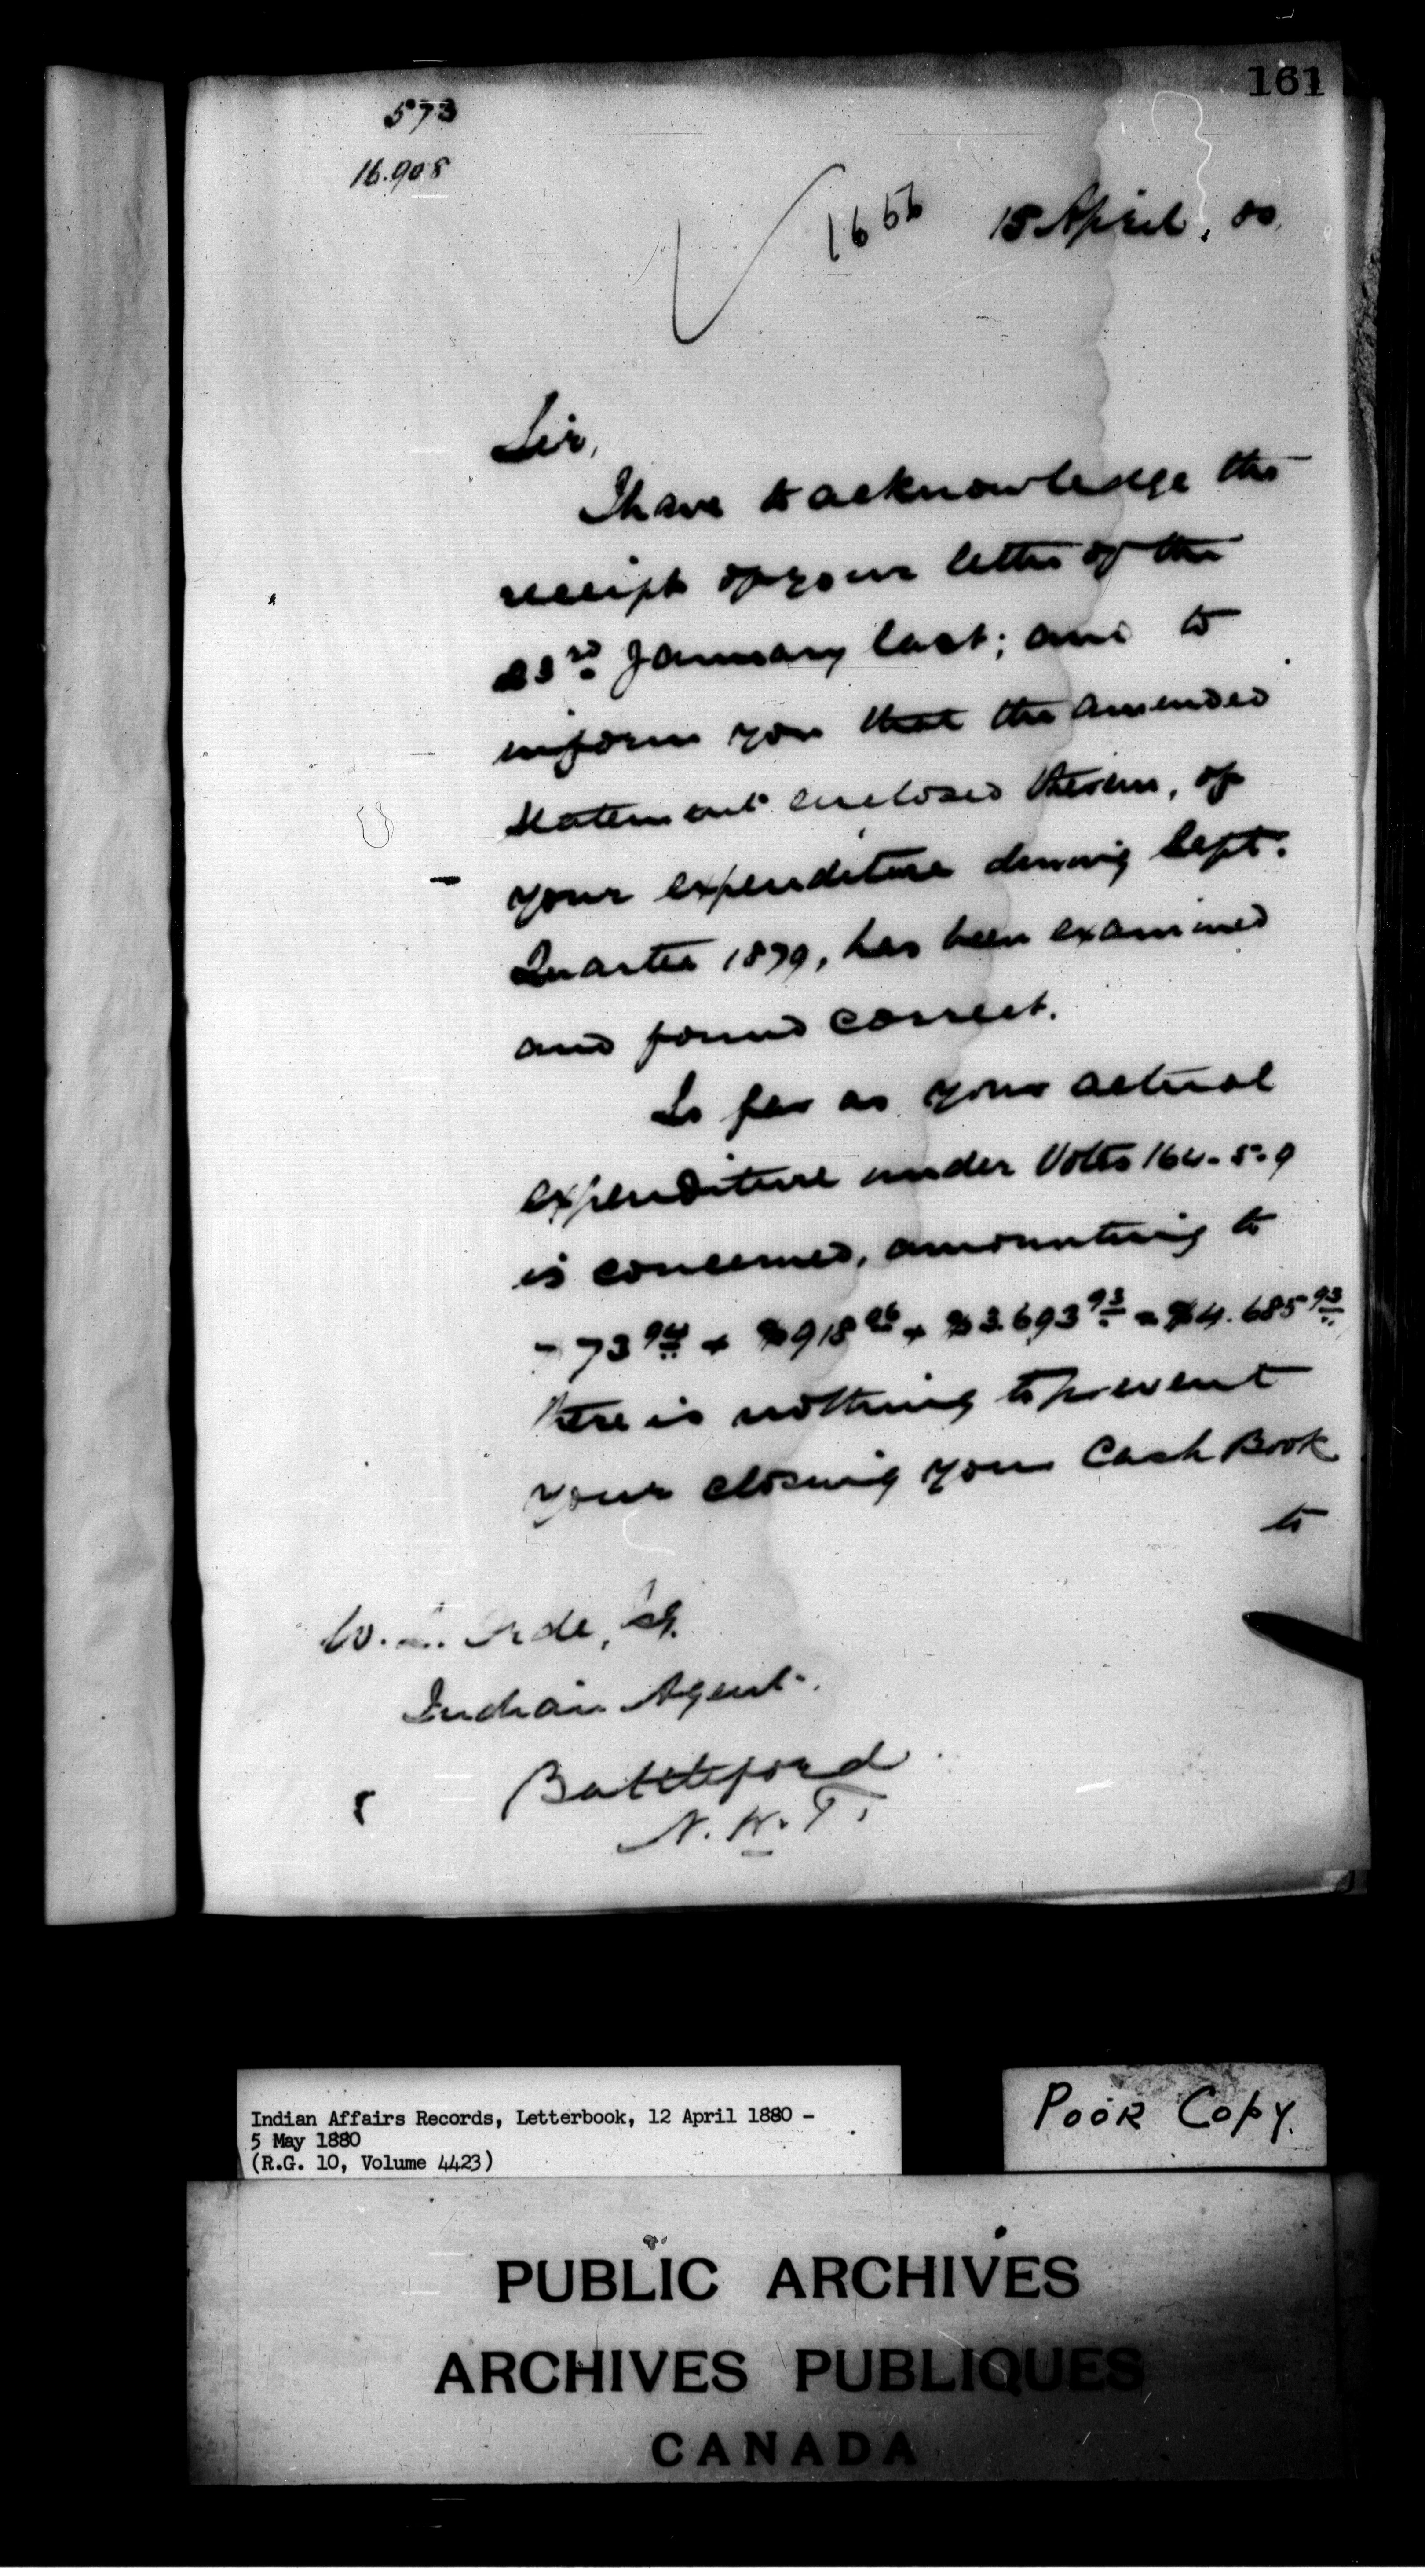 161
573
16.908
1656 15 April, 80.
Sir,
I have to acknowledge the
receipt of your letter of the
23rd January last; and to
inform you that the amended
Statement enclosed therein, of
your expenditure during Sept.
Quarter 1879, has been examined
and found correct.
So far as your actual
expenditure under Votes 164-5-9
is concerned, amounting to
73 94 + $918 26 + $3.693 93 = $4.685 93
there is nothing to prevent
your closing your Cash Book
to
W. L. Orde, Esq.
Indian Agent.
Battleford
N.W.T.
Indian Affairs Records, Letterbook, 12 April 1880 -
5 May 1880
(R.G. 10, Volume 4423)
Poor Copy.
PUBLIC ARCHIVES
ARCHIVES PUBLIQUES
CANADA